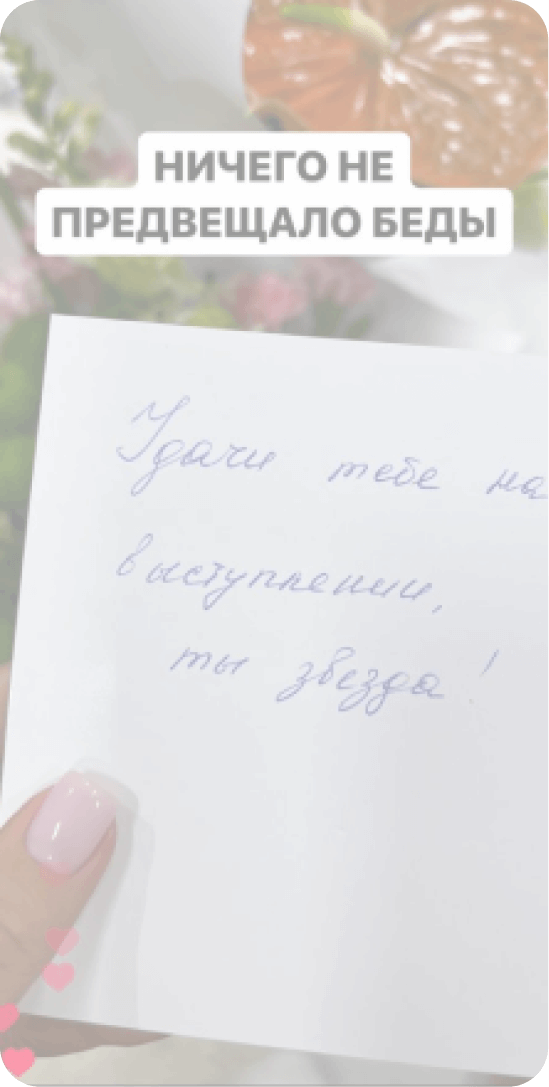 НИЧЕГО НЕ
ПРЕДВЕЩАЛО БЕДЫ
Удачи тебе на
выступлении,
ты звезда!